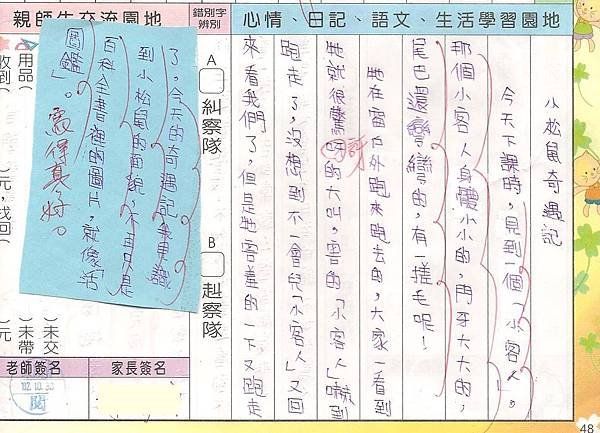 心情、日記、語文、生活學習園地
小松鼠奇遇記
今天下課時，見到一個「小客人」。
那個小客人身體小小的，門牙大大的，
尾巴還彎彎的，有一搓毛呢！
牠在窗戶外跑來跑去的，大家一看到
牠就很驚訝的大叫，害的「小客人」嚇到
跑走了，沒想到不一會兒「小客人」又回
來看我們了，但是牠害羞的一下又跑走
錯別字
辨別
A 糾察隊
B 赳察隊
親師生交流園地
了。今天的奇遇記見識
到小松鼠的面貌，不再只是
百科全書裡的圖片，就像「活
圖鑑」。寫得真好。
）未交
）未帶
）元
用品（
收到（
）元，找回（
老師簽名
家長簽名
102.10.30
閱
48